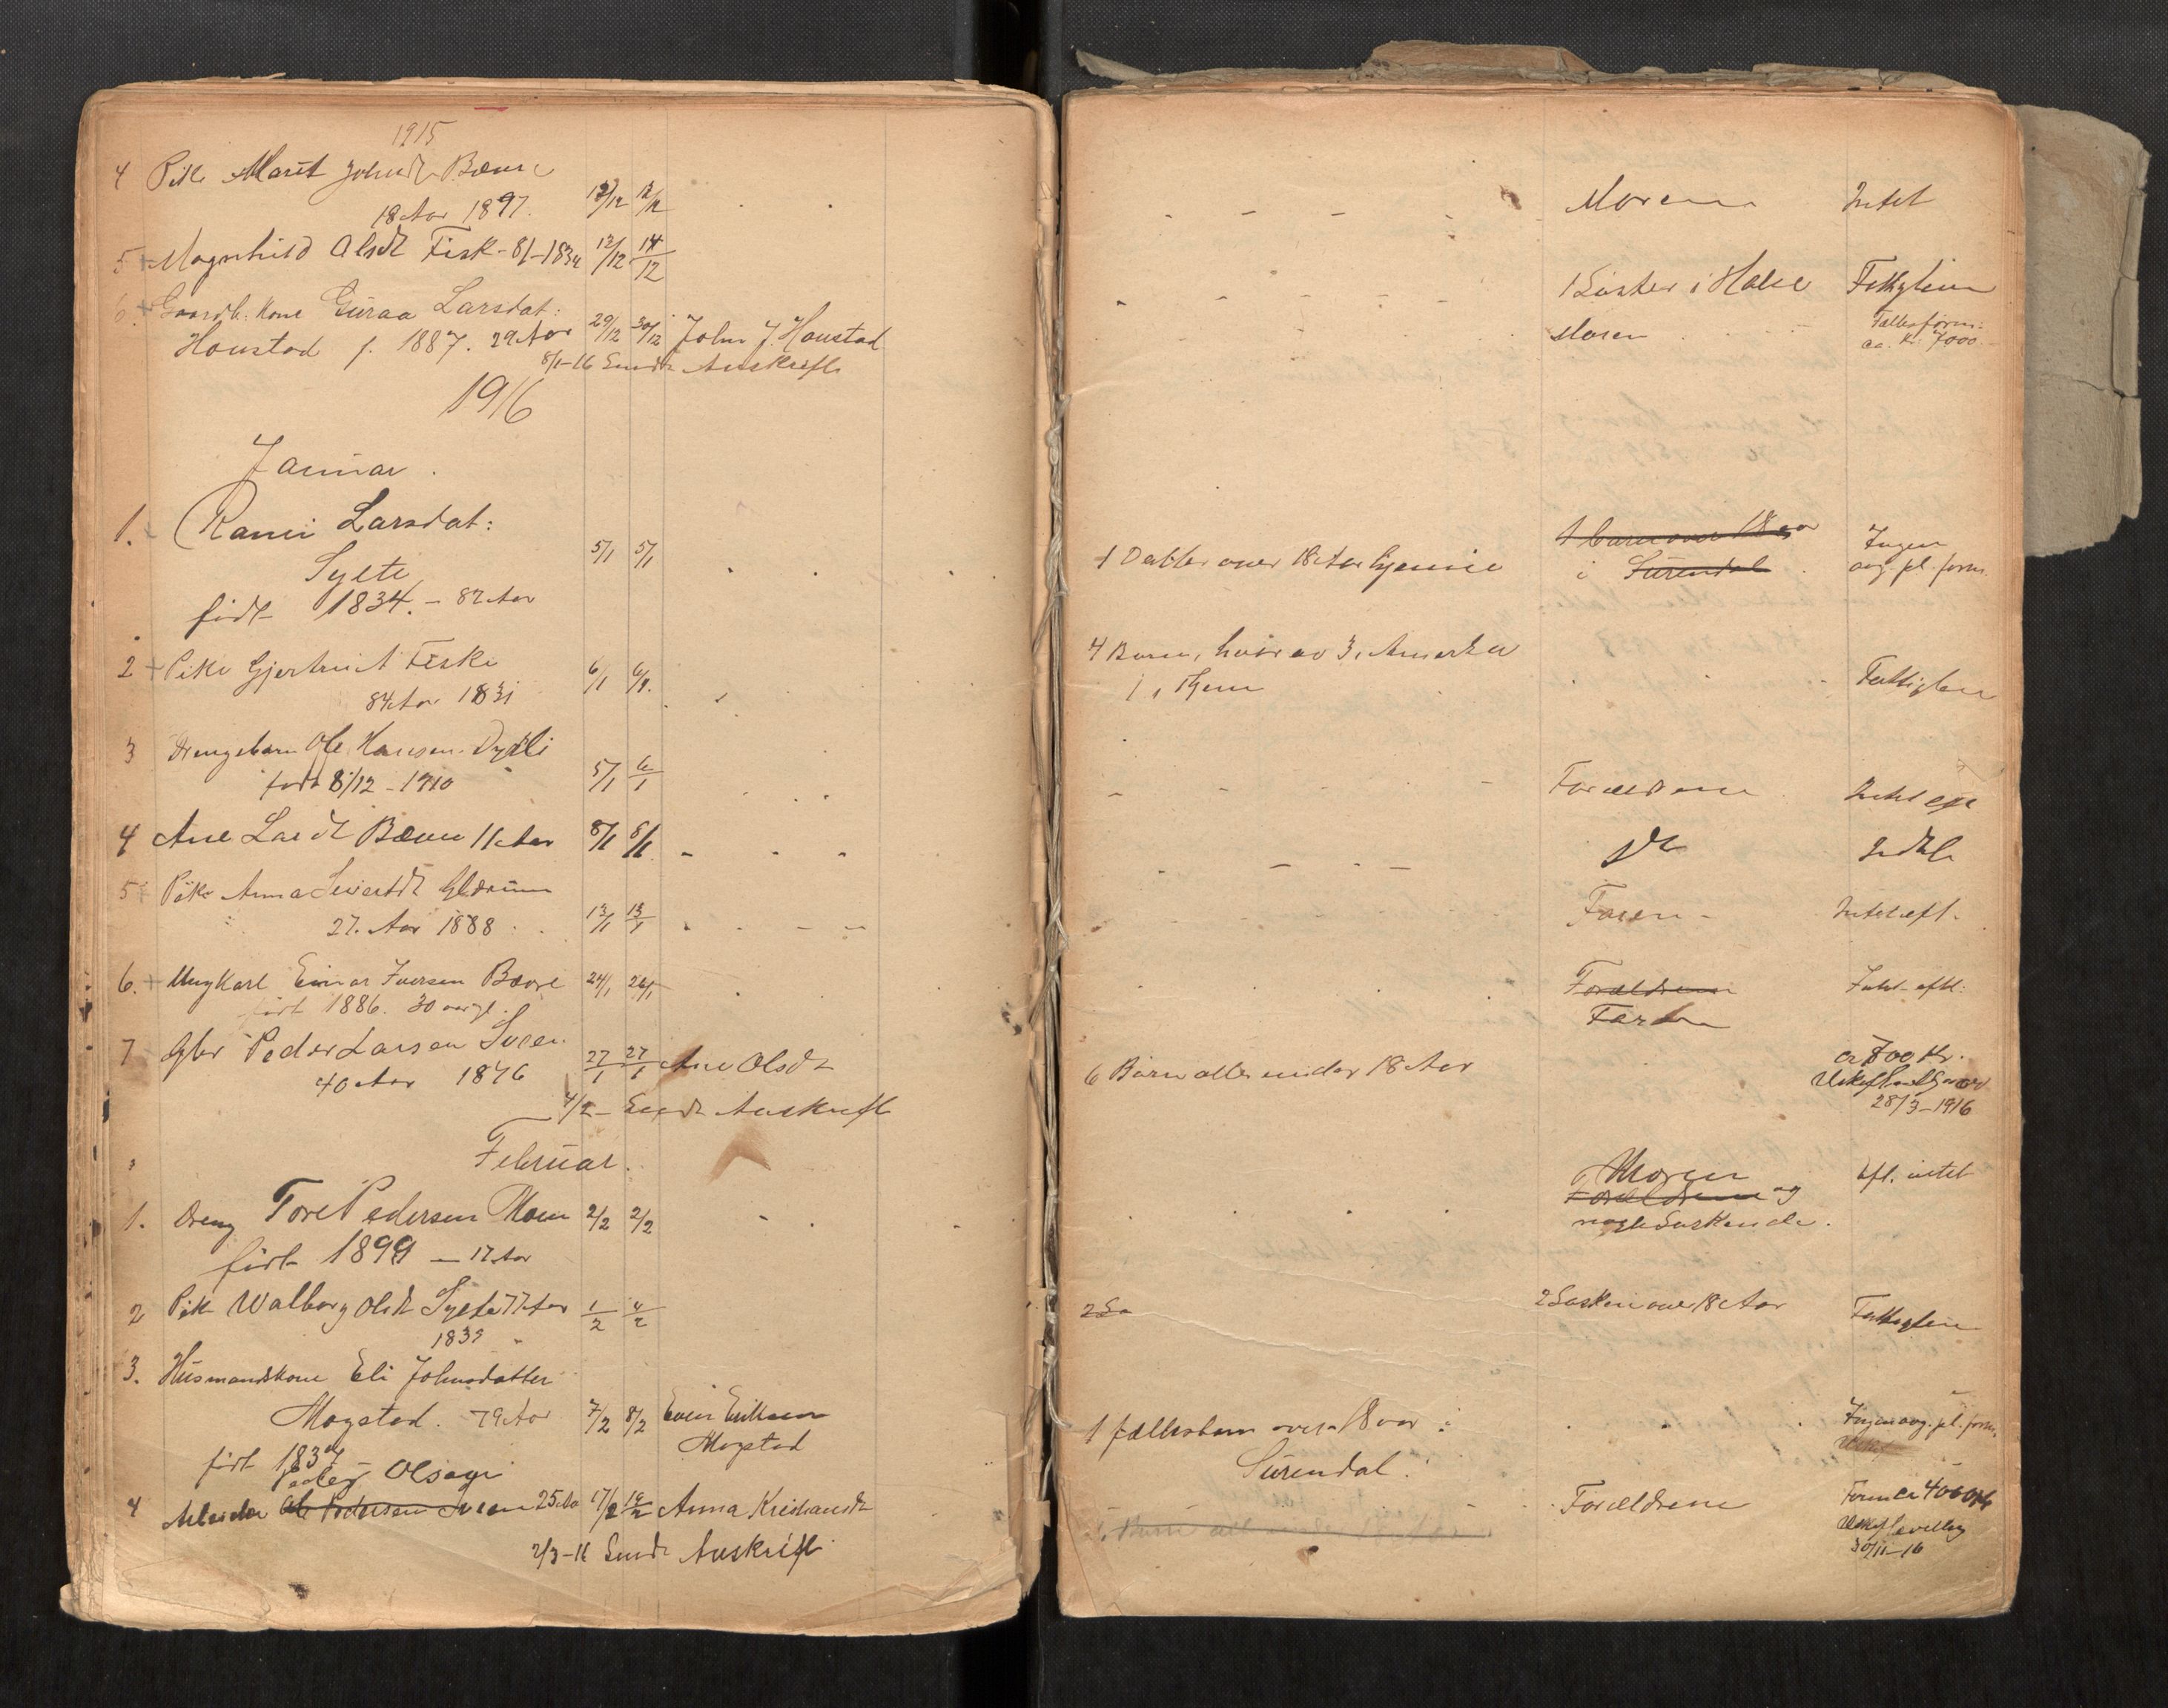 1915
4 Pike Marit Johnsdt Bævre
18 Aar 1897. 12/12 12/12
Moren Intet
5 + Magnhild Olsdt Fiske - 81 - 1834 12/12 14/12
1 Søster i Halse Fattiglem
6. + Gaardb. Kone Guraa Larsdat:
Honstad f. 1887. 29 Aar 29/12 30/12 John J. Honstad
Moren Fællesform:
ca. Kr. 7000
8/1-16 Sendt Avskrift
1916
Januar.
1. Rani Larsdat:
Sylte 5/1 5/1
født 1834. - 82 Aar
1 Datter over 18 Aar hjemme
1 barn over 18 aar
i Surendal
Ingen
avg. pl. form.
2 + Pike Gjertrud Fiske 6/1 6/1.
84 Aar 1831
4 Børn, hvorav 3 i Amerka
1 i Hjem
Fattiglem
3 Drengebarn Ole Hansen
født 8/12 - 1910 5/1 6/1
Forældrene Intet eft
4 Ane Lardt Bævre 11 Aar 8/1 8/1
do Intet
5 + Pike Anna Sivertdt Glærum
27. Aar 1888 13/1 13/1
Faren - Intet eft.
6. + Ungkarl Einar Iversen Bævre 24/1 26/1
født 1886. 30 aar gl.
Forældrene
Faren
Intet eftl:
7 Gbr Peder Larsen Sveen
40 Aar 1876 27/1 27/1 Ane Olsdt
6 Børn alle under 18 Aar
ca 800 Kr.
28/3-1916
4/2 - Sendt Avskrift
Februar.
1. Dreng Tore Pedersen Moen 2/2 2/2
født 1899 - 17 Aar
Moren
Forældrene og
nogle Søskende.
Eft. intet
2 Pike Walborg Olsdt Sylte 77 Aar 1/2 4/2
1839
2 Sø
2 Søsken over 18 Aar Fattiglem
3. Husmandskone Eli Johnsdatter
Mogstad. 79 Aar 7/2 8/2 Even Eriksen
Mogstad
født 1837
1 fællesbarn over 18 aar i
Surendal.
Ingen avg. pl. form.
Peder Olsen
4 Arbeider Ole Pedersen Sveen 25 Aar 17/2 19/2 Anna Kristiansdt
Forældrene Form ca 4000 Kr
30/11-16
2/3-16 Sendt Avskrift